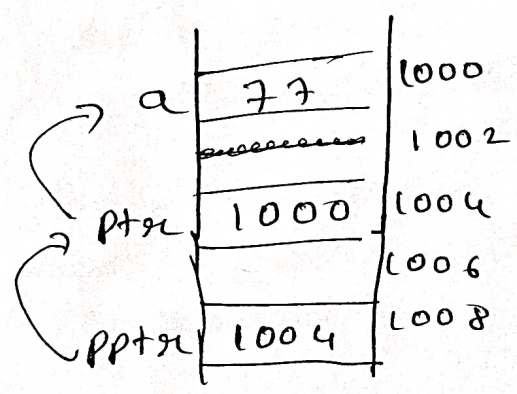 a 77 1000
1002
ptr 1000 1004
1006
pptr 1004 1008